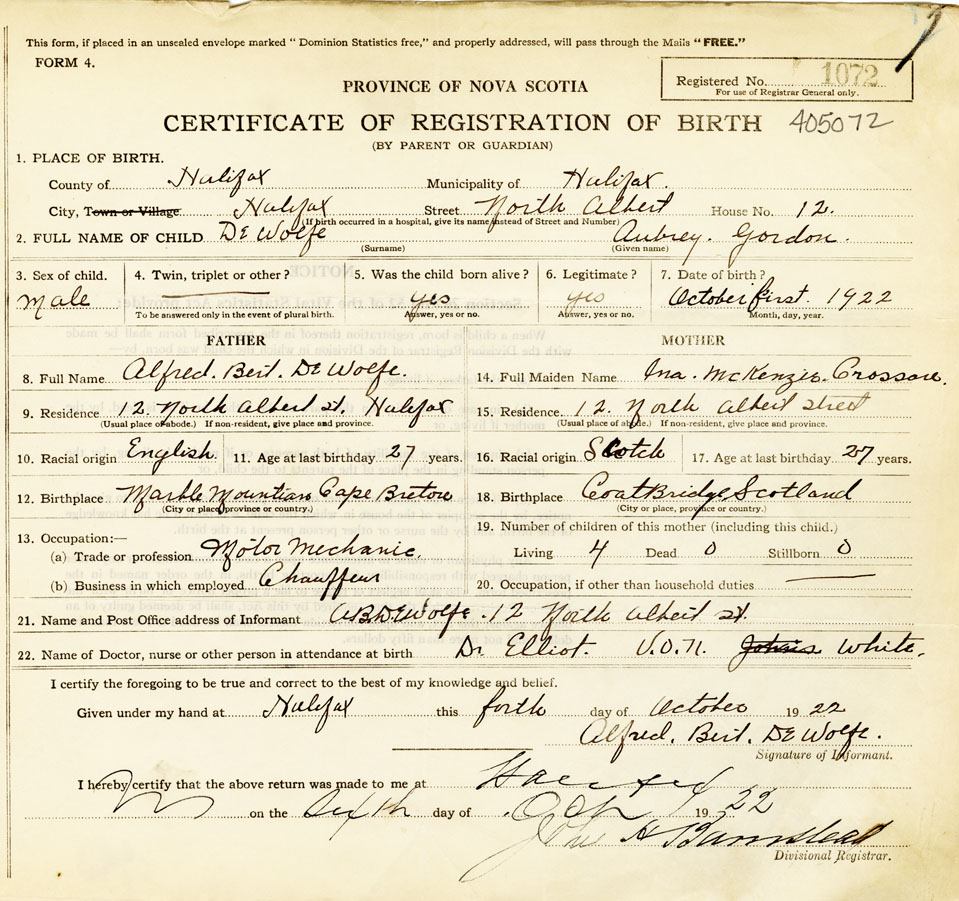 This form, if placed in an unsealed envelope marked “ Dominion Statistics free,” and properly addressed, will pass through the Mails “FREE.”
FORM 4.
Registered No. 1072
For use of Registrar General only.
PROVINCE OF NOVA SCOTIA
CERTIFICATE OF REGISTRATION OF BIRTH 405072
(BY PARENT OR GUARDIAN)
1. PLACE OF BIRTH.
County of Halifax Municipality of Halifax.
City, Town or Village Halifax Street North Albert House No. 12.
(If birth occurred in a hospital, give its name instead of Street and Number)
2. FULL NAME OF CHILD De Wolfe Aubrey. Gordon.
(Surname) (Given name)
3. Sex of child. 4. Twin, triplet or other? 5. Was the child born alive? 6. Legitimate? 7. Date of birth?
Male yes yes October first. 1922
To be answered only in the event of plural birth. Answer, yes or no. Answer, yes or no. Month, day, year.
FATHER MOTHER
8. Full Name Alfred. Bert. De Wolfe. 14. Full Maiden Name Ina. McKenzie. Crossan.
9. Residence 12. North Albert st. Halifax 15. Residence. 12. North Albert street
(Usual place of abode.) If non-resident, give place and province. (Usual place of abode.) If non-resident, give place and province.
10. Racial origin English. 11. Age at last birthday 27 years. 16. Racial origin Scotch 17. Age at last birthday 27 years.
12. Birthplace Marble Mountian Cape Breton 18. Birthplace CoatBridge Scotland
(City or place, province or country.) (City or place, province or country.)
19. Number of children of this mother (including this child.)
13. Occupation:—
(a) Trade or profession Motor Mechanic. Living 4 Dead 0 Stillborn 0
(b) Business in which employed Chauffeur 20. Occupation, if other than household duties
21. Name and Post Office address of Informant A B De Wolfe. 12 North Albert st.
22. Name of Doctor, nurse or other person in attendance at birth Dr Elliot. V.O.N. White.
I certify the foregoing to be true and correct to the best of my knowledge and belief.
Given under my hand at Halifax this forth day of October 1922
Alfred. Bert. De Wolfe.
Signature of Informant.
I hereby certify that the above return was made to me at Halifax
on the sixth day of Oct 1922
Jno H Barnstead
Divisional Registrar.